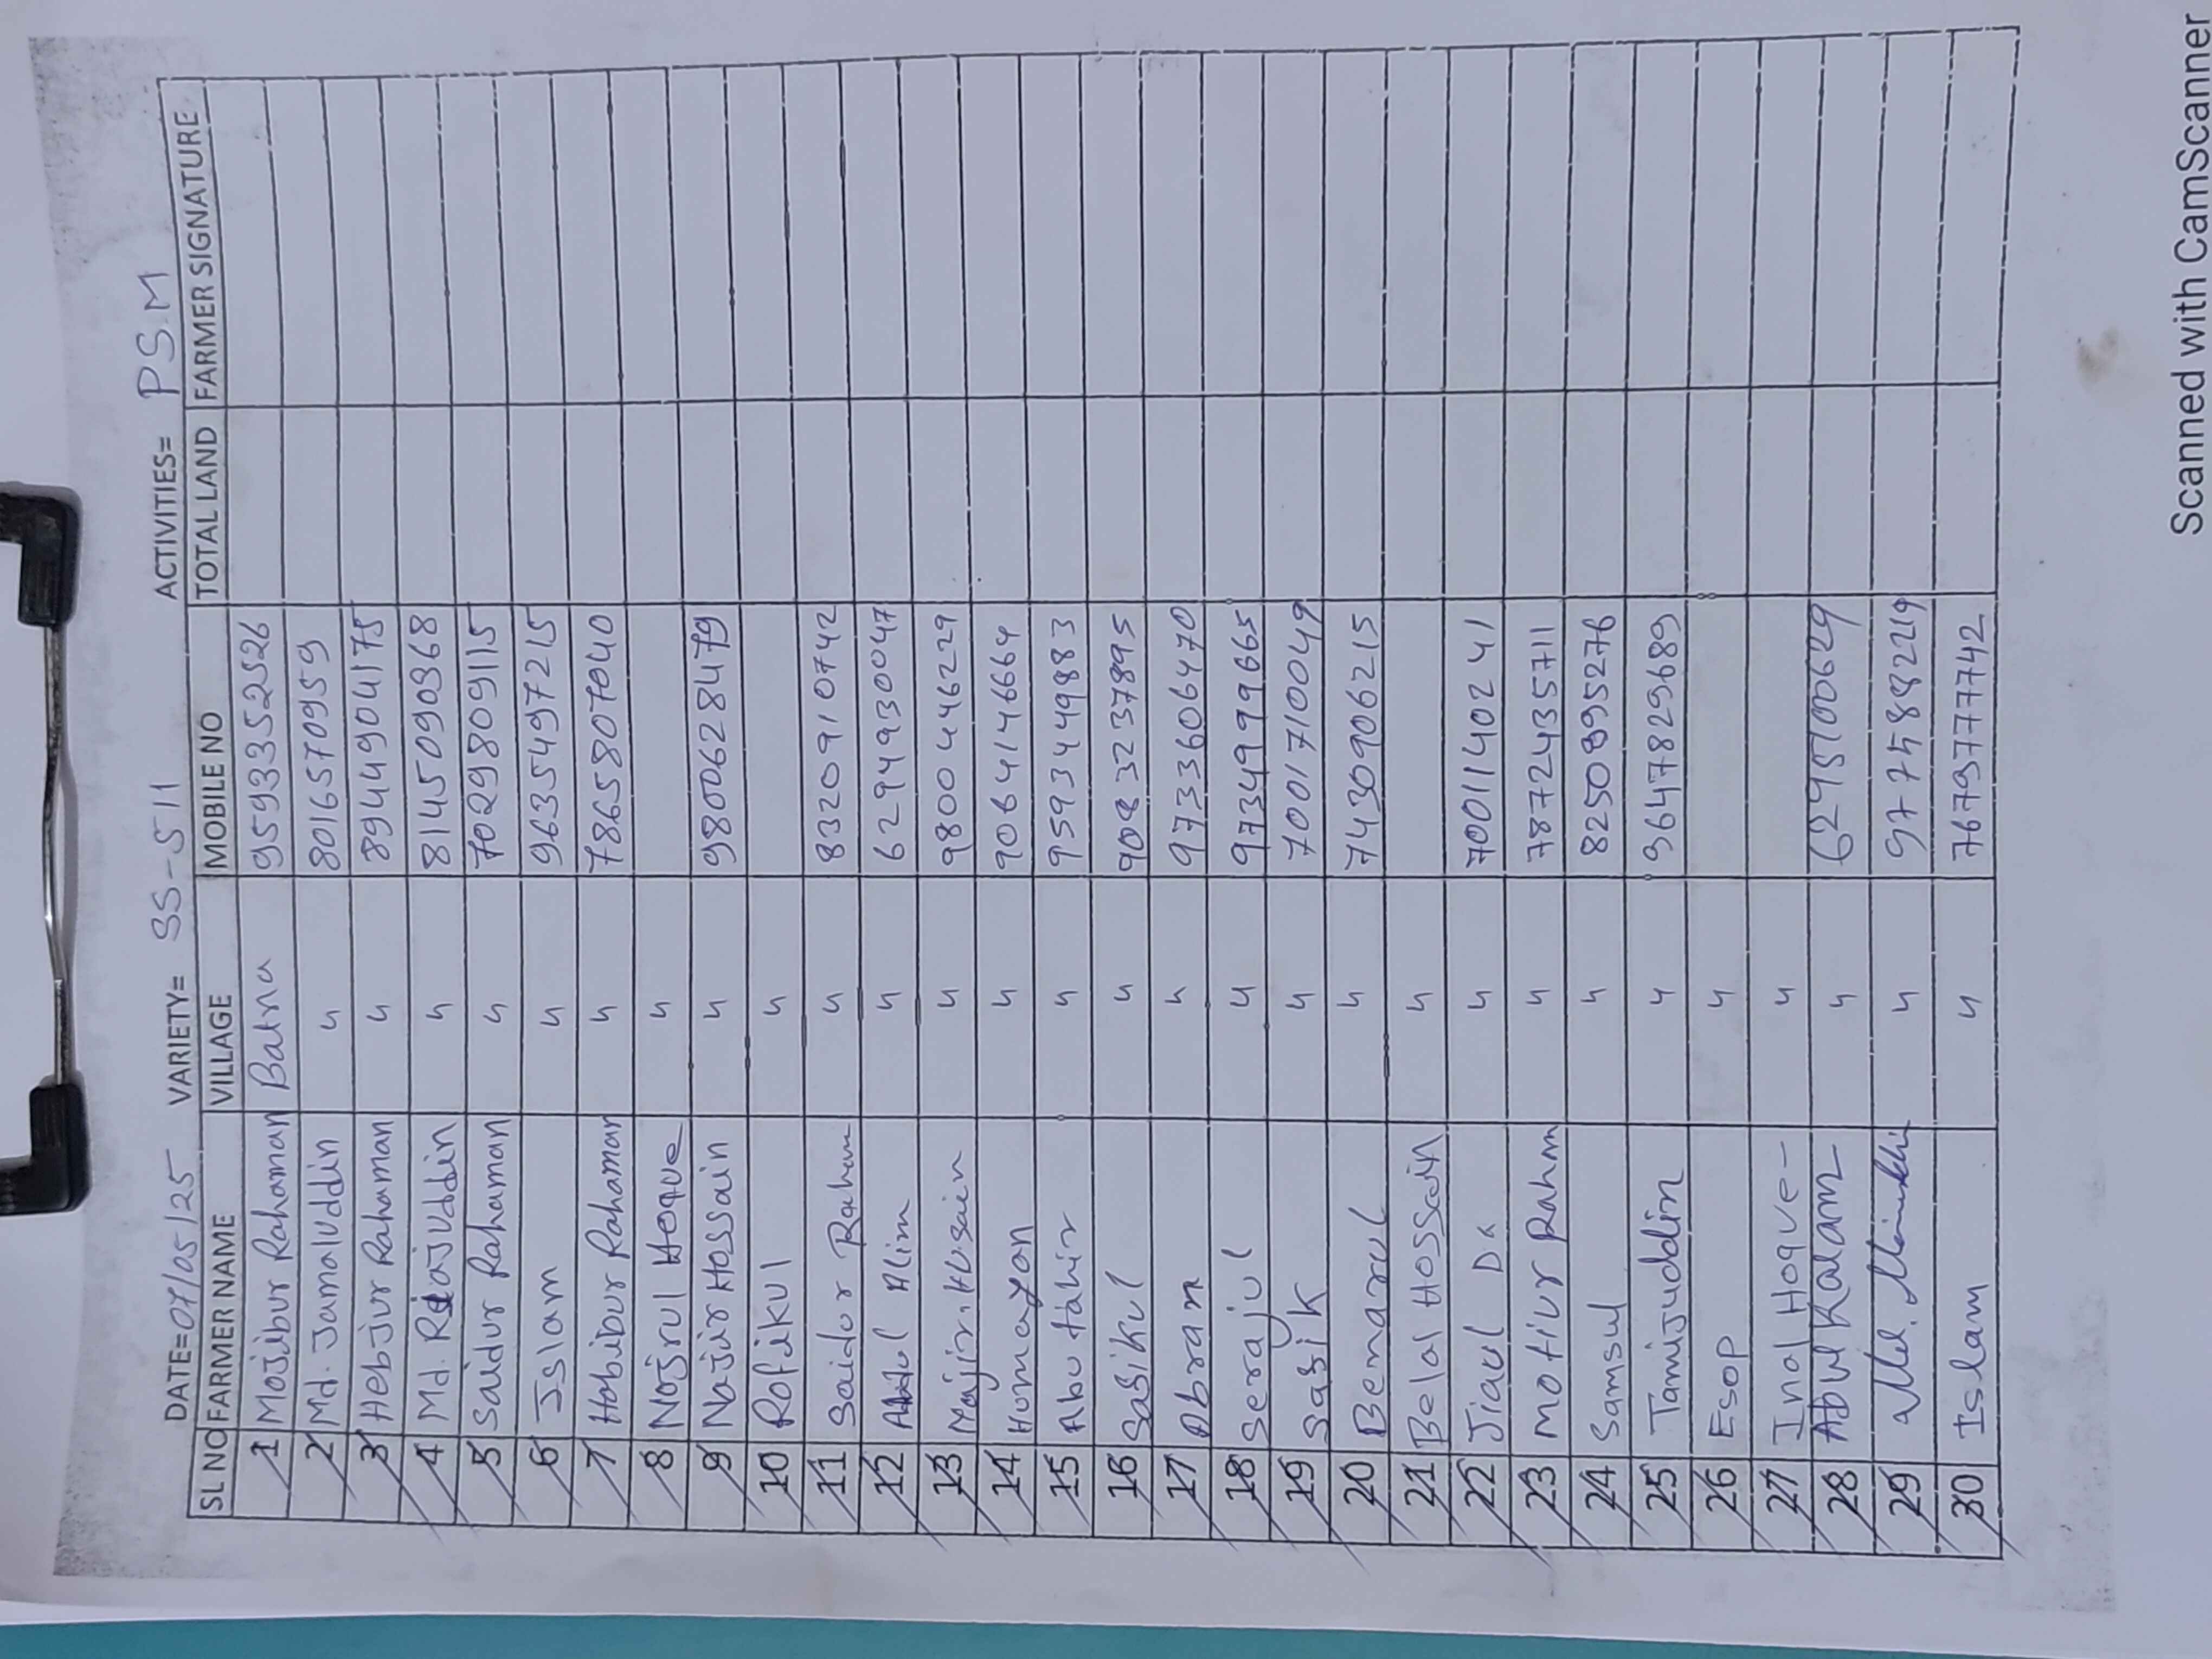 DATE=07/05/25 VARIETY= SS-511 ACTIVITIES= P.S.M
SL NO FARMER NAME VILLAGE MOBILE NO TOTAL LAND FARMER SIGNATURE
1 Mojibur Rahaman Batna 9593352526
2 Md. Jamaluddin " 8016570959
3 Hebjur Rahaman " 8944904175
4 Md. Riajuddin " 8145090368
5 Saidur Rahaman " 7029809115
6 Islam " 9635497215
7 Habibur Rahaman " 7865807040
8 Nojrul Hoque "
9 Najir Hossain " 9800628479
10 Rofikul "
11 Saidor Raham " 8320910742
12 Abdul Alim " 6294930047
13 Husain " 9800446229
14 Homayon " 9064146664
15 Abu tahir " 9593449883
16 Sasikul " 9083237895
17 Abram " 9733606470
18 Serajul " 9734999665
19 Sasik " 7001710049
20 Bemarul " 7430906215
21 Belal Hossain "
22 Jiaul " 7001140241
23 Motiur Rahm " 7872435711
24 Samsul " 8250895276
25 Tamijuddin " 9647829689
26 Esop "
27 Inal Hoque "
28 Abul Kalam " 6295100629
29 Md. " 9775882219
30 Islam " 7679777742
Scanned with CamScanner